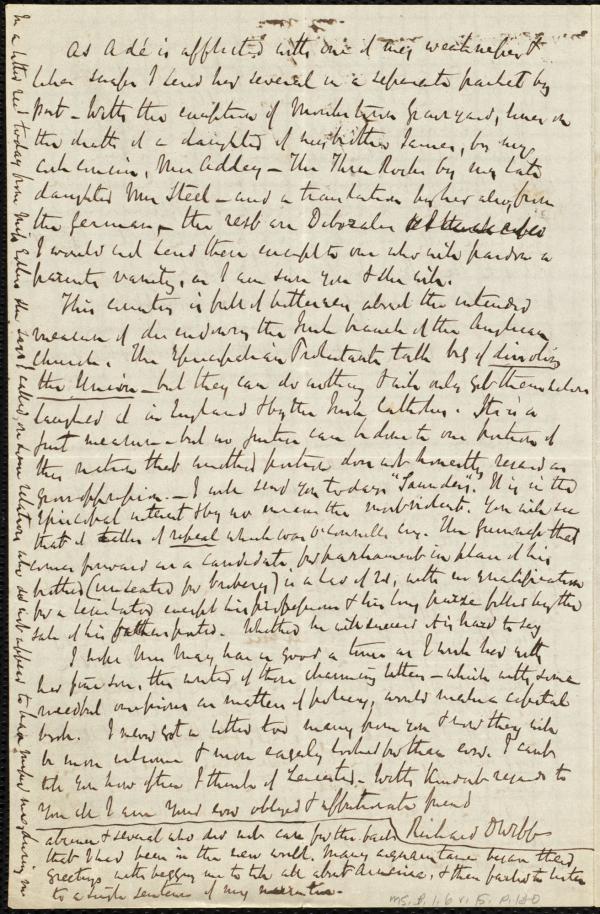 As A dé is afflicted with one of my weaknesses &
takes scraps I send her several in a separate packet by
post - With the exception of Monkstown Graveyard, lines on
the death of a daughter of my brother James, by my
cousin, Mrs Addey - The Three Rocks by my late
daughter Mrs Steel - and a translation by her also from
the German - the rest are Deborah's
I would not send these except to one who will pardon a
parent's vanity, as I am sure you & she will.
This country is full of bitterness about the intended
measure of disendowing the Irish branch of the Anglican
Church. The Episcopalian Protestants talk big of dissolving
the Union - but they can do nothing & will only get themselves
laughed at in England & by the Irish Catholics. It is a
just measure - but no justice can be done to one portion of
this nation that another portion does not honestly regard as
gross oppression. - I will send you today's "Saunders". It is in the
Episcopal interest & by no means the most violent. You will see
that it talks of repeal which was O'Connell's cry. The Guinness that
comes forward as a candidate for parliament in place of his
brother (unseated for bribery) is a lad of 21, with no qualification
for a legislator except his professions & his long purse filled by the
sale of his father's porter. Whether he will succeed it is hard to say
I hope Mrs May has as good a time as I wish her with
her fine son, the writer of those charming letters - which with some
needful omissions on matters of policy, would make a capital
book. I never got a letter too many from you & now they will
be more welcome & more eagerly looked for than ever. I can't
tell you how often I think of Leicester. With kindest regards to
you all I am your ever obliged & affectionate friend
Richard D Webb
In a letter recd today from Miss she says I called on some relations who did not appear to have missed me during my
absence & several who did not care for the facts
that I had been in the new world. Many acquaintances began their
greetings with begging me to tell all about America, & then failed to listen
to a single sentence of my narrative.
ms. B. 1. 6 v. 5. p. 120